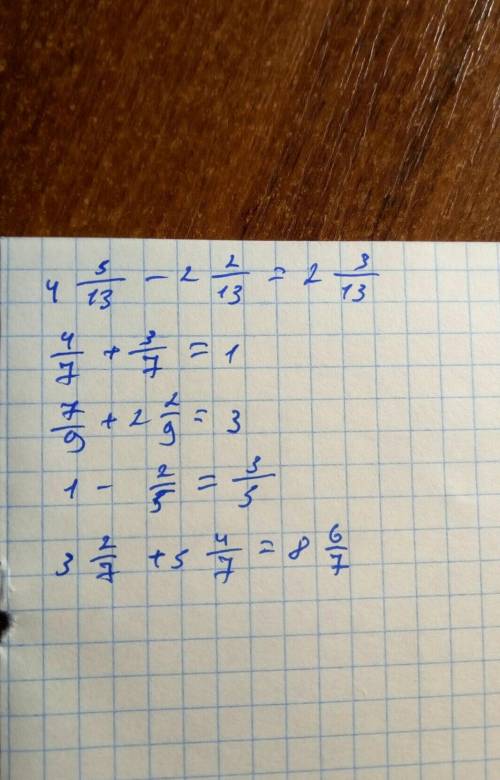 4 5/13 - 2 2/13 = 2 3/13
4/7 + 3/7 = 1
7/9 + 2 2/9 = 3
1 - 2/5 = 3/5
3 2/7 + 5 4/7 = 8 6/7